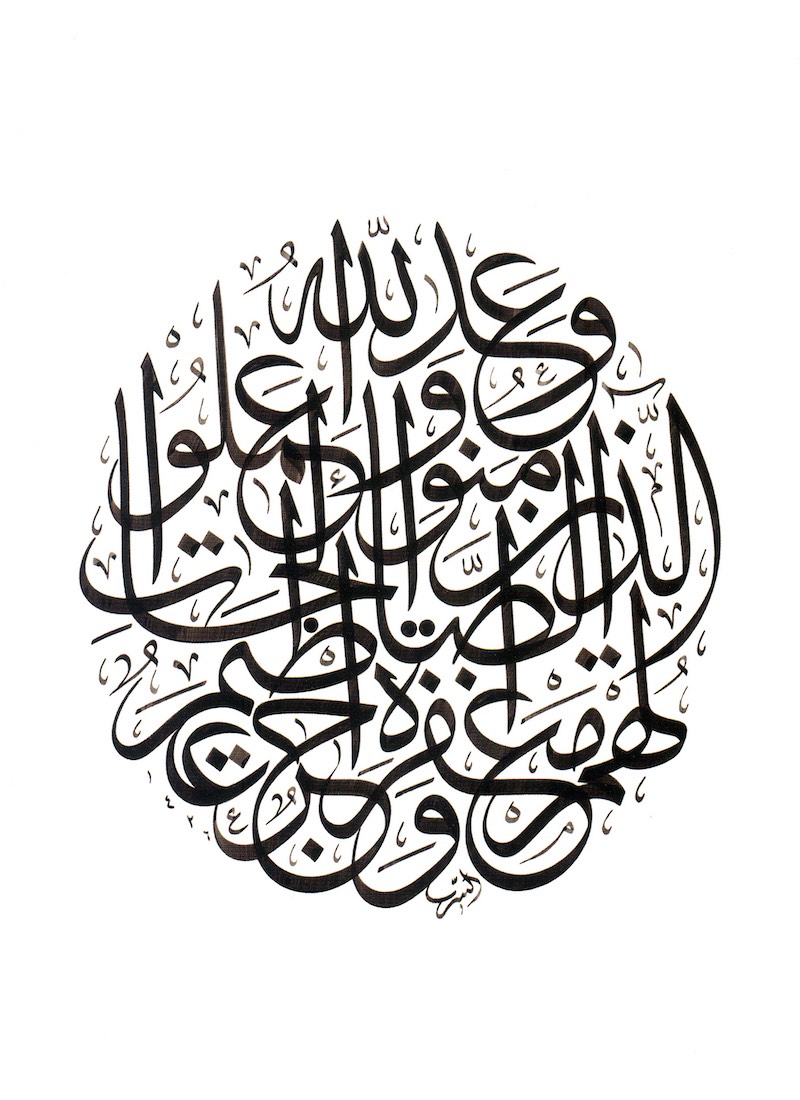 وَعَدَ اللّٰهُ
الَّذِينَ اٰمَنُوا وَعَمِلُوا
الصَّالِحَاتِ
لَهُمْ مَغْفِرَةٌ
وَأَجْرٌ عَظِيمٌ
١٤٢٦